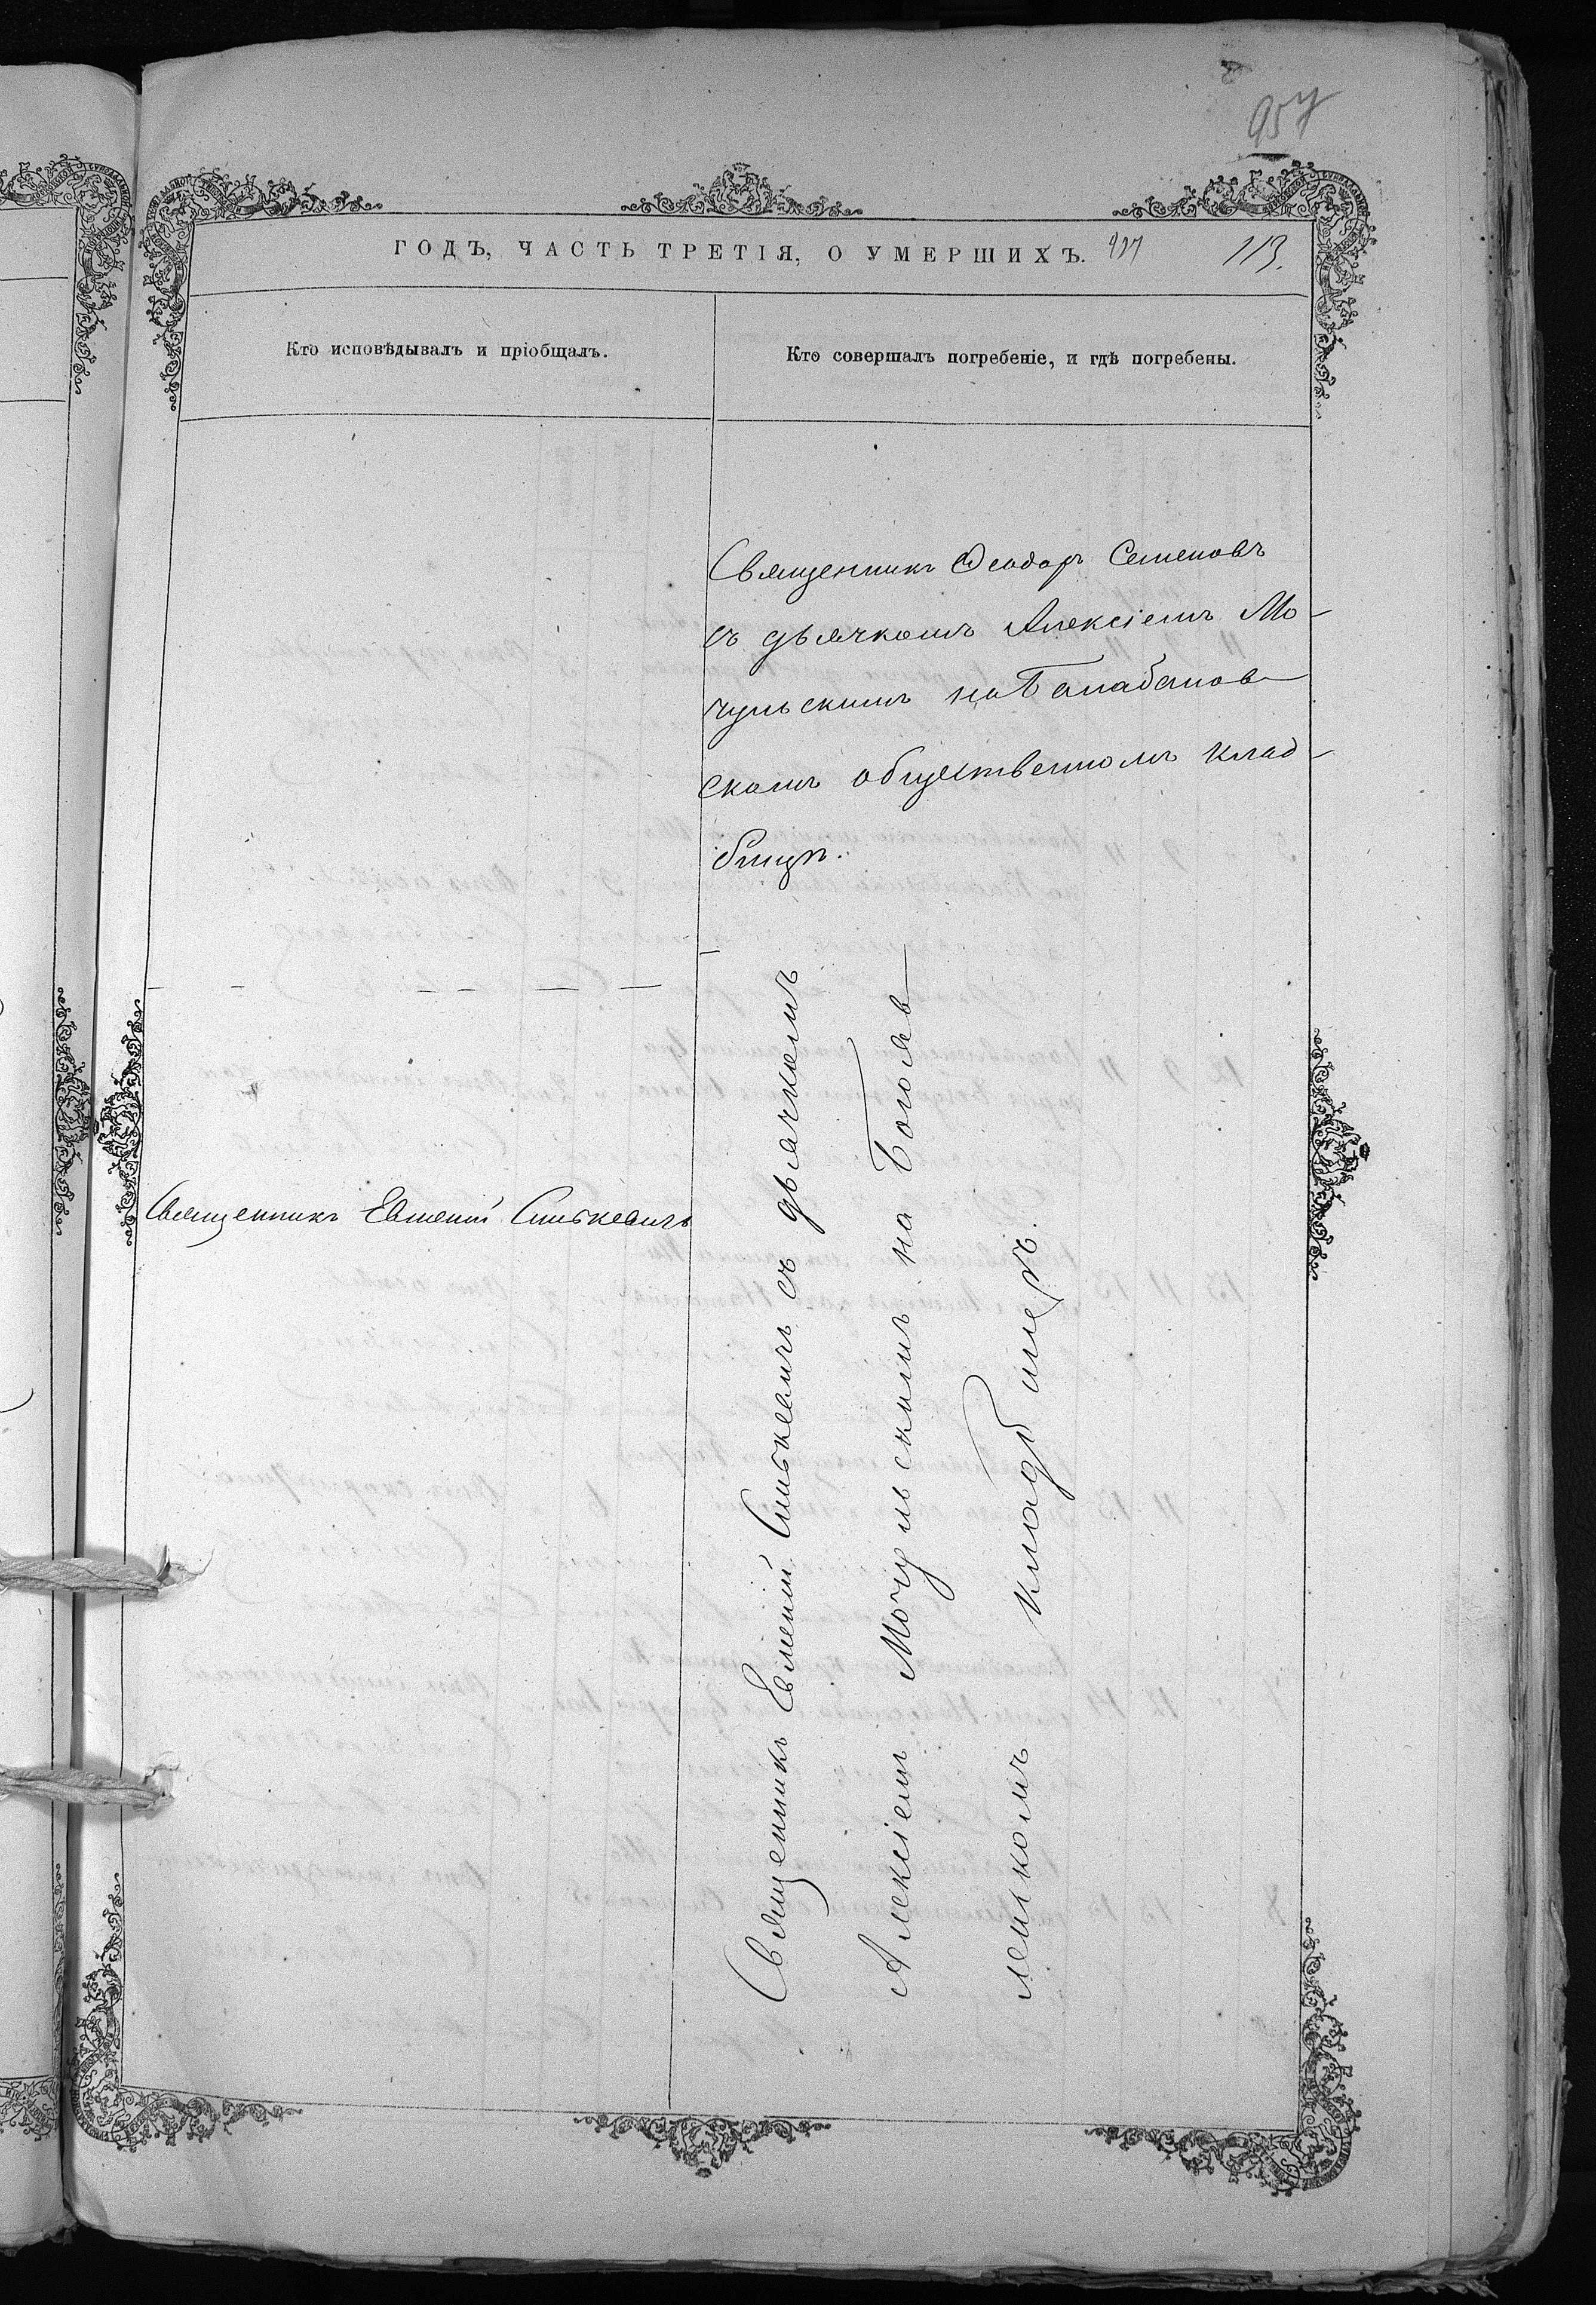 957
ГОДЪ, ЧАСТЬ ТРЕТІЯ, О УМЕРШИХЪ.
113.
Кто исповѣдывалъ и пріобщалъ.
Кто совершалъ погребеніе, и гдѣ погребены.
Священникъ Ѳеодоръ Семеновъ
съ дьячкомъ Алексіемъ Мо-
чульскимъ на Балабанов-
скомъ общественномъ клад-
бищѣ.
Священникъ Евменій Синькевичъ
Священникъ Евменій Синькевичъ съ дьячкомъ
Алексіем Мочульскимъ на Богояв-
ленскомъ кладбищѣ.